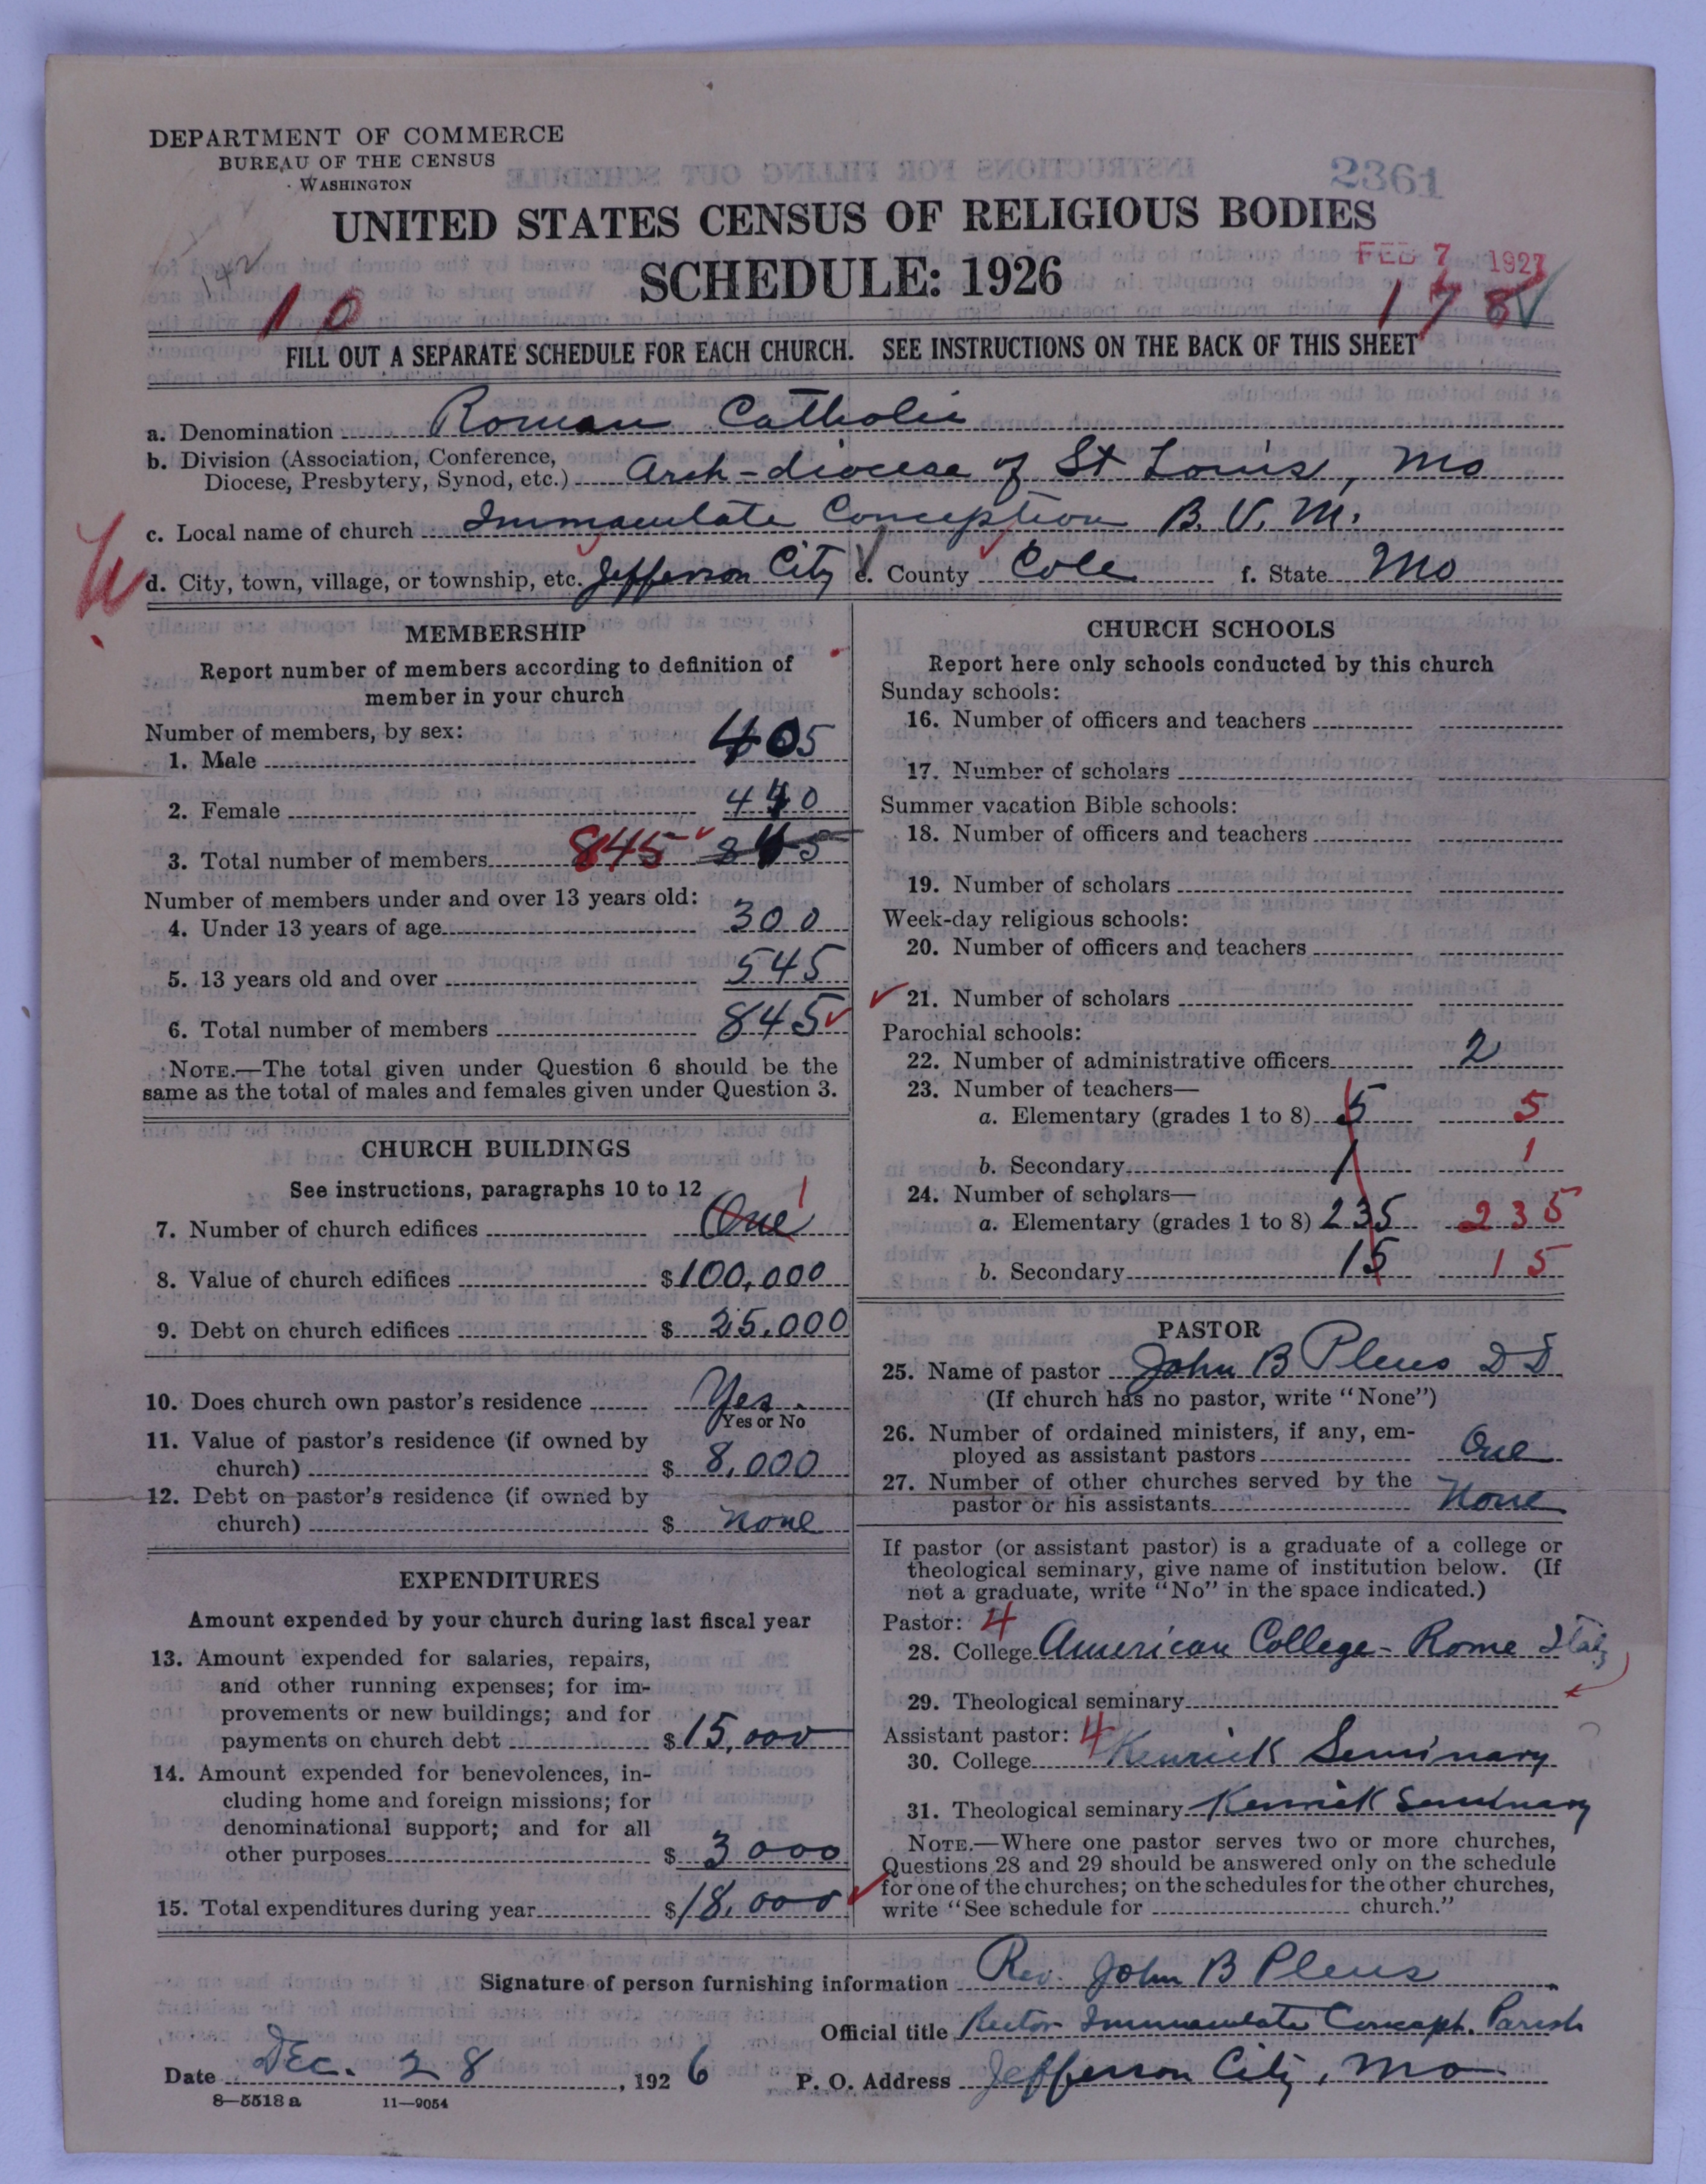 DEPARTMENT OF COMMERCE
BUREAU OF THE CENSUS
WASHINGTON
2361
UNITED STATES CENSUS OF RELIGIOUS BODIES
SCHEDULE: 1926
FEB 7 1927
142
10
178
FILL OUT A SEPARATE SCHEDULE FOR EACH CHURCH. SEE INSTRUCTIONS ON THE BACK OF THIS SHEET
a. Denomination Roman Catholic
b. Division (Association, Conference, Diocese, Presbytery, Synod, etc.) Arch-diocese of St Louis, Mo
c. Local name of church Immaculate Conception B. V. M.
d. City, town, village, or township, etc. Jefferson City e. County Cole f. State Mo
MEMBERSHIP
Report number of members according to definition of
member in your church
Number of members, by sex:
1. Male 405
2. Female 440
3. Total number of members 845 845
Number of members under and over 13 years old:
4. Under 13 years of age 300
5. 13 years old and over 545
6. Total number of members 845
NOTE.—The total given under Question 6 should be the
same as the total of males and females given under Question 3.
CHURCH BUILDINGS
See instructions, paragraphs 10 to 12
7. Number of church edifices One 1
8. Value of church edifices $100,000
9. Debt on church edifices $ 25,000
10. Does church own pastor's residence Yes.
Yes or No
11. Value of pastor's residence (if owned by
church) $ 8,000
12. Debt on pastor's residence (if owned by
church) $ none
EXPENDITURES
Amount expended by your church during last fiscal year
13. Amount expended for salaries, repairs,
and other running expenses; for im-
provements or new buildings; and for
payments on church debt $15,000
14. Amount expended for benevolences, in-
cluding home and foreign missions; for
denominational support; and for all
other purposes $ 3000
15. Total expenditures during year $18,000
CHURCH SCHOOLS
Report here only schools conducted by this church
Sunday schools:
16. Number of officers and teachers
17. Number of scholars
Summer vacation Bible schools:
18. Number of officers and teachers
19. Number of scholars
Week-day religious schools:
20. Number of officers and teachers
21. Number of scholars
Parochial schools:
22. Number of administrative officers 2
23. Number of teachers—
a. Elementary (grades 1 to 8) 5 5
b. Secondary 1 1
24. Number of scholars—
a. Elementary (grades 1 to 8) 235 235
b. Secondary 15 15
PASTOR
25. Name of pastor John B Pleus D D
(If church has no pastor, write "None")
26. Number of ordained ministers, if any, em-
ployed as assistant pastors One
27. Number of other churches served by the
pastor or his assistants None
If pastor (or assistant pastor) is a graduate of a college or
theological seminary, give name of institution below. (If
not a graduate, write "No" in the space indicated.)
Pastor: 4
28. College American College - Rome Italy
29. Theological seminary
Assistant pastor: 4
30. College Kenrick Seminary
31. Theological seminary Kenrick Seminary
NOTE.—Where one pastor serves two or more churches,
Questions 28 and 29 should be answered only on the schedule
for one of the churches; on the schedules for the other churches,
write "See schedule for church."
Signature of person furnishing information Rev. John B Pleus
Official title Rector Immaculate Concept. Parish
Date Dec. 28, 1926 P. O. Address Jefferson City, Mo
8—5518 a 11—9054